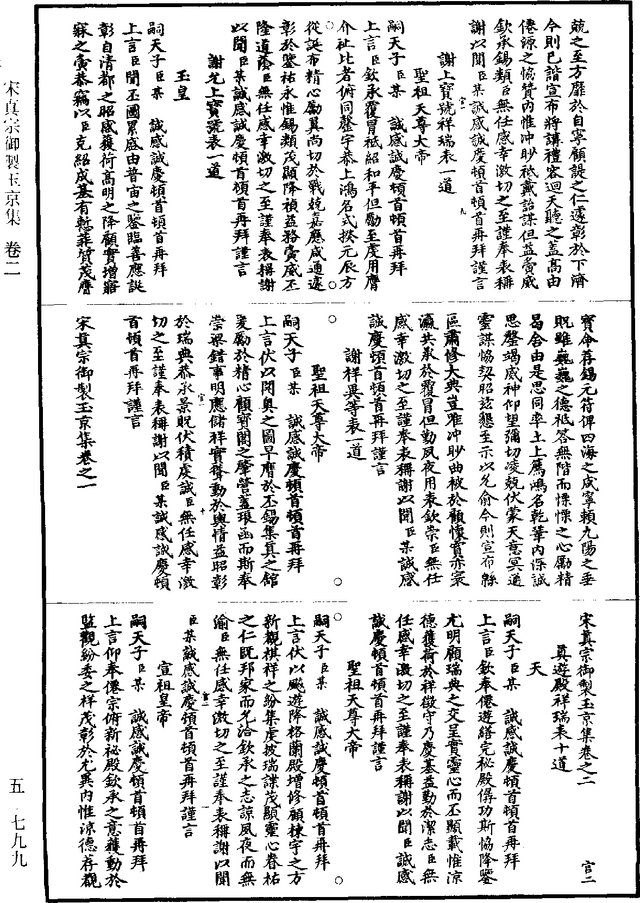 兢之至方靡於自寧顧諟之仁遽彰於下濟
今則已諧宣布將講禮容迴天聽之蓋高由
僊源之協贊內惟冲眇祗戴詒謀但益夤威
欽承錫類臣無任感幸激切之至謹奉表稱
謝以聞臣某誠感誠慶頓首頓首再拜謹言
謝上寶號祥瑞表一道
聖祖天尊大帝
嗣天子臣某 誠感誠慶頓首頓首再拜
上言臣欽承覆冒祗紹和平但勵至虔用膺
介祉比者俯同寰宇恭上鴻名式揆元辰方
從誕布精心勵翼尚切於戰兢嘉應咸通遽
彰於鑒祐永惟錫類茂顯降禎益務夤威丕
隆道蔭臣無任感幸激切之至謹奉表稱謝
以聞臣某誠感誠慶頓首頓首再拜謹言
謝允上寶號表一道
玉皇
嗣天子臣某 誠感誠慶頓首頓首再拜
上言臣聞丕國累盛由普宙之鑒臨善應誕
彰自清都之昭感獲荷高明之降顧實增寤
寐之夤恭竊以臣克紹成基有慙菲質茂膺
寶命荐錫元符俾四海之咸寧賴九陽之垂
貺雖巍巍之德祗荅無階而慄慄之心勵精
曷舍由是思同率土上薦鴻名乾鞏內深誠
思罄竭威神仰望彌切凌兢伏蒙天意冥通
靈謀協契昭茲懇至示以允俞今則宣布縣
區肅修大典豈雅冲眇曲被於顧懷實亦寰
瀛共承於覆冒但勤夙夜用表欽崇臣無任
感幸激切之至謹奉表稱謝以聞臣某誠感
誠慶頓首頓首再拜謹言
謝祥異等表一道
聖祖天尊大帝
嗣天子臣某 誠感誠慶頓首頓首再拜
上言伏以開奧之圖早膺於丕錫集真之館
爰勵於精心顧寶閣之肇營蓋琅函而斯奉
崇梁錯事明應儲祥實聳動於輿情益昭彰
於瑞典恭承景貺伏積虔誠臣無任感幸激
切之至謹奉表稱謝以聞臣某誠感誠慶頓
首頓首再拜謹言
宋真宗御製玉京集卷之一
宋真宗御製玉京集卷之二 官二
真遊殿祥瑞表十道
天
嗣天子臣某 誠感誠慶頓首頓首再拜
上言臣欽奉僊遊繕完秘殿僝功斯協降鑒
尤明顧瑞典之交呈實靈心而丕顯載惟涼
德獲荷於祥徵守乃慶基益勤於潔志臣無
任感幸激切之至謹奉表稱謝以聞臣某誠感
誠慶頓首頓首再拜謹言
聖祖天尊大帝
嗣天子臣某 誠感誠慶頓首頓首再拜
上言伏以飈遊降格蘭殿增修顧棟宇之方
新覩祺祥之紛集虔披瑞諜茂顯靈心眷祐
之仁既邦家而允洽欽承之志諒夙夜而無
渝臣無任感幸激切之至謹奉表稱謝以聞
臣某誠感誠慶頓首頓首再拜謹言
宣祖皇帝
嗣天子臣某 誠感誠慶頓首頓首再拜
上言仰奉僊宗俯新祕殿欽承之意獲動於
監觀紛委之祥茂彰於尤異內惟涼德荐觀
宋真宗御製玉京集 卷二
五·七九九